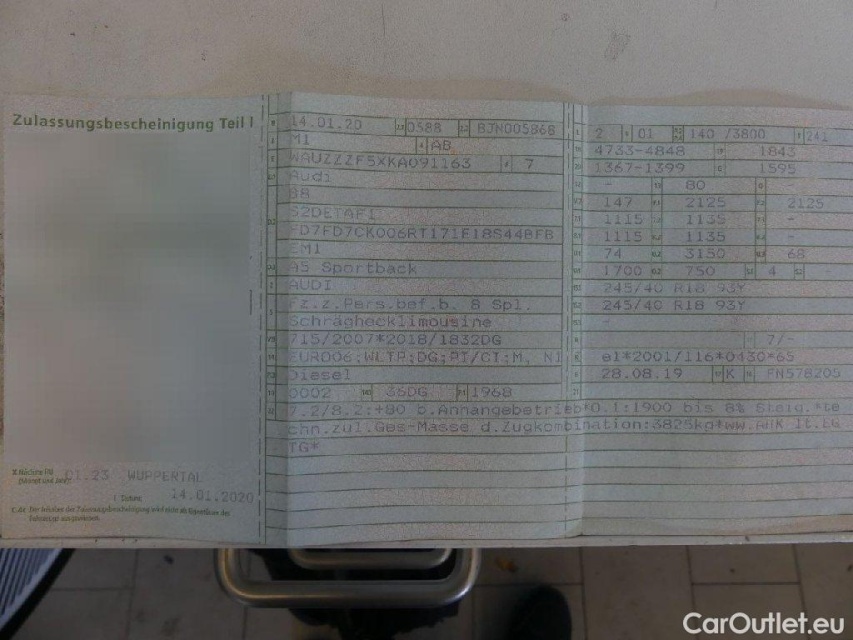 Zulassungsbescheinigung Teil I
14.01.20 0588 BJN005868
M1 AB
WAUZZZF5XKA091163 7
Audi
B8
S2DETAF1
FD7FD7CK006RT171F18S44BFB
EM1
A5 Sportback
AUDI
Fz.z.Pers.bef.b. 8 Spl.
Schräghecklimousine
715/2007*2018/1832DG
EURO6;WLTP;DG;PI/CI;M, N1
Diesel
0002 36DG 1968
2 01 140 /3800 241
4733-4848 1843
1367-1399 1595
- 80 -
147 2125 2125
1115 1135 -
1115 1135 -
74 3150 68
1700 750 4 -
245/40 R18 93Y
245/40 R18 93Y
-
- 7/-
e1*2001/116*0430*65
28.08.19 K FN578205
7.2/8.2:+80 b.Anhängebetrieb*0.1:1900 bis 8% Steig.*te
chn.zul.Ges-Masse d.Zugkombination:3825kg*ww.AHK lt.EG
TG*
01.23 WUPPERTAL
14.01.2020
CarOutlet.eu